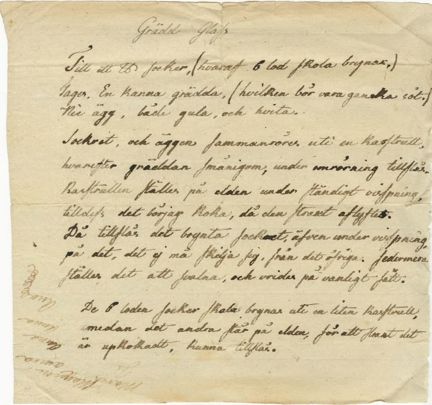 Grädd Glass
Till ett ℔ socker, (hvaraf 6 lod skola brynas,)
tages. En kanna grädda, (hvilken bör vara ganska söt.)
Nie ägg, både gula, och hvita.
Sockret, och äggen sammanröres uti en kastrull,
hvarefter gräddan småningom, under omrörning tillslås.
Kastrullen ställes på elden under ständigt vispning,
tilldess det börjar koka, då den strant aflyftes.
Då tillslås det brynta sockret, äfven under vispning,
på det, det ej må skilja sig, från det öfriga. Sedermera
ställes det att svalna, och vrides på vanligt sätt.
De 6 loden socker skola brynas uti en liten kastrull,
medan det andra står på elden, för att strant det
är uppkokadt, kunna tillslås.